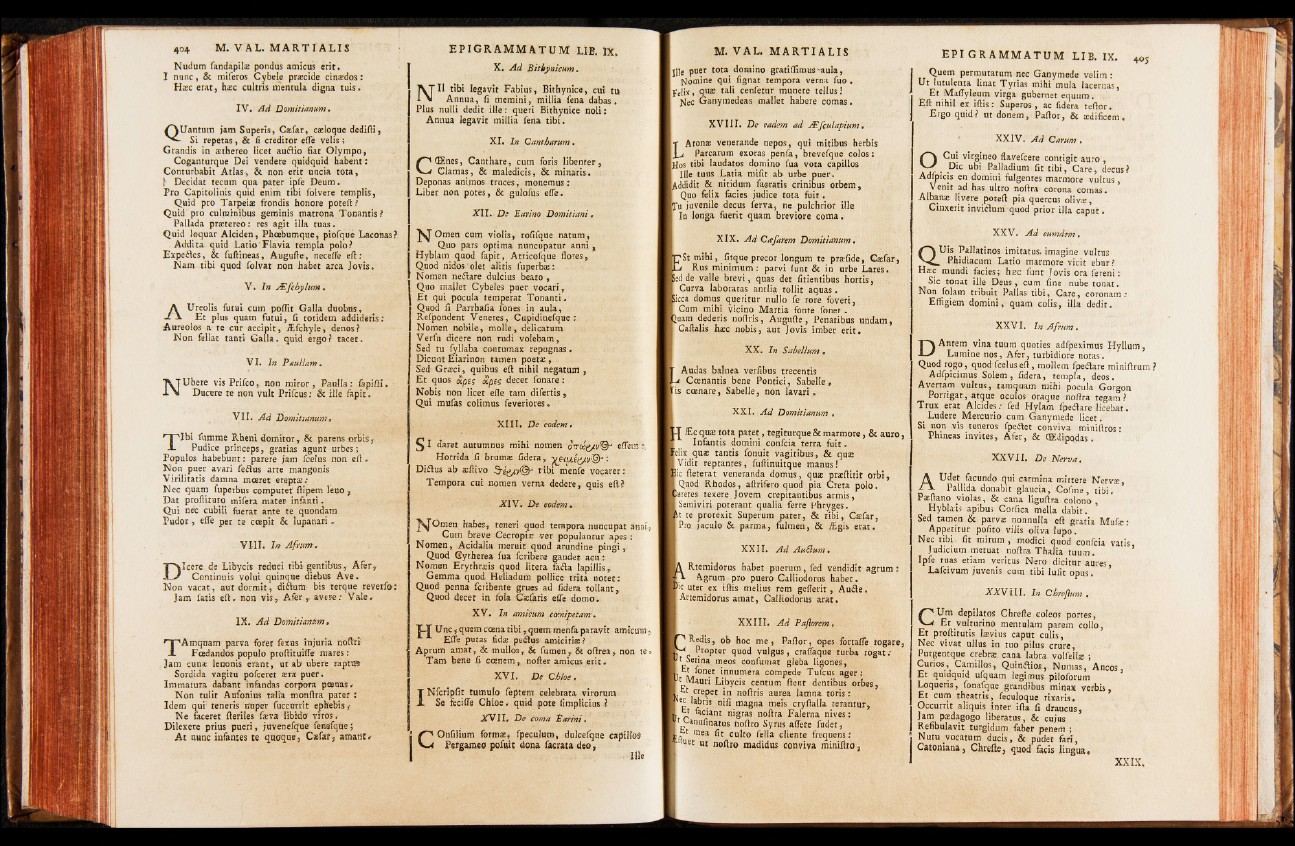 404 M. VAL. MARTIALIS
Nudum ſandapilæ pondus amicus erit.
I nunc, & miſeros Cybele præcide cinædos:
Hæc erat, hæc cultris mentula digna tuis.
IV. Ad Domitianum.
QUantum jam Superis, Cæſar, cæloque dediſti,
Si repetas, & ſi creditor eſſe velis;
Grandis in æthereo licet auctio fiat Olympo,
Coganturque Dei vendere quidquid habent:
Conturbabit Atlas, & non erit uncia tota,
Decidat tecum qua pater ipſe Deum.
Pro Capitolinis quid enim tibi ſolvere templis,
Quid pro Tarpeiæ frondis honore poteſt?
Quid pro culminibus geminis matrona Tonantis?
Pallada prætereo: res agit illa tuas.
Quid loquar Alciden, Phœbumque, pioſque Laconas?
Addita quid Latio Flavia templa polo?
Expectes, & ſuſtineas, Auguſte, neceſſe eſt:
Nam tibi quod ſolvat non habet arca Jovis.
V. In Æſchylum.
AUreolis futui cum poſſit Galla duobus,
Et plus quam futui, ſi totidem addideris:
Aureolos a te cur accipit, Æſchyle, denos?
Non fellat tanti Galla. quid ergo? tacet.
VI. In Paullam.
NUbere vis Priſco, non miror, Paulla: ſapiſti.
Ducere te non vult Priſcus: & ille ſapit.
VII. Ad Domitianum.
TIbi ſumme Rheni domitor, & parens orbis,
Pudice princeps, gratias agunt urbes;
Populos habebunt: parere jam ſcelus non eſt.
Non puer avari ſectus arte mangonis
Virilitatis damna mœret ereptæ:
Nec quam ſuperbus computet ſtipem leno,
Dat proſtituto miſera mater infanti.
Qui nec cubili fuerat ante te quondam
Pudor, eſſe per te cœpit & lupanari.
VIII. In Afrum.
DIcere de Libycis reduci tibi gentibus, Afer,
Continuis volui quinque diebus Ave.
Non vacat, aut dormit, dictum bis terque reverſo:
Jam ſatis eſt. non vis, Afer, avere: Vale.
IX. Ad Domitianum.
TAmquam parva foret ſexus injuria noſtri
Fœdandos populo proſtituiſſe mares:
Jam cunæ lenonis erant, ut ab ubere raptus
Sordida vagitu poſceret æra puer.
Immatura dabant infandas corpora pœnas.
Non tulit Auſonius talia monſtra pater:
Idem qui teneris nuper ſuccurrit ephebis,
Ne faceret ſteriles ſæva libido viros.
Dilexere prius pueri, juveneſque ſeneſque;
At nunc infantes te quoque, Cæſar, amant.
EPIGRAMMATUM LIB. IX.
X. Ad Bithynicum.
NIl tibi legavit Fabius, Bithynice, cui tu
Annua, ſi memini, millia ſena dabas.
Plus nulli dedit ille: queri Bithynice noli:
Annua legavit millia ſena tibi.
XI. In Cantharum.
CŒnes, Canthare, cum foris libenter,
Clamas, & maledicis, & minaris.
Deponas animos truces, monemus:
Liber non potes, & guloſus eſſe.
XII. De Earino Domitiani.
NOmen cum violis, roſiſque natum,
Quo pars optima nuncupatur anni,
Hyblam quod ſapit, Atticoſque flores,
Quod nidos olet alitis ſuperbæ:
Nomen nectare dulcius beato,
Quo mallet Cybeles puer vocari,
Et qui pocula temperat Tonanti.
Quod ſi Parrhaſia ſones in aula,
Reſpondent Veneres, Cupidineſque:
Nomen nobile, molle, delicatum
Verſu dicere non rudi volebam,
Sed tu ſyllaba contumax repugnas.
Dicunt Eiarinon tamen poetæ,
Sed Græci, quibus eſt nihil negatum,
Et quos ἄρες ἄρες decet ſonare:
Nobis non licet eſſe tam diſertis,
Qui muſas colimus ſeveriores.
XIII. De eodem.
SI daret autumnus mihi nomen ὀπωρινὸς eſſem:
Horrida ſi brumæ ſidera, χειμέρινος:
Dictus ab æſtivo θέρινος tibi menſe vocarer:
Tempora cui nomen verna dedere, quis eſt?
XIV. De eodem.
NOmen habes, teneri quod tempora nuncupat anni,
Cum breve Cecropiæ ver populantur apes:
Nomen, Acidalia meruit quod arundine pingi,
Quod Cytherea ſua ſcribere gaudet acu:
Nomen Erythræis quod litera facta lapillis,
Gemma quod Heliadum pollice trita notet:
Quod penna ſcribente grues ad ſidera tollant,
Quod decet in ſola Cæſaris eſſe domo.
XV. In amicum cœnipetam.
HUnc, quem cœna tibi, quem menſa paravit amicum,
Eſſe putas fidæ pectus amicitiæ?
Aprum amat, & mullos, & ſumen, & oſtrea, non te.
Tam bene ſi cœnem, noſter amicus erit.
XVI. De Chloe.
INſcripſit tumulo ſeptem celebrata virorum
Se feciſſe Chloe. quid pote ſimplicius?
XVII. De coma Earini.
COnſilium formæ, ſpeculum, dulceſque capillos
Pergameo poſuit dona ſacrata deo,
Ille
M. VAL. MARTIALIS
Ille puer tota domino gratiſſimus aula,
Nomine qui ſignat tempora verna ſuo.
Felix, quæ tali cenſetur munere tellus!
Nec Ganymedeas mallet habere comas.
XVIII. De eadem ad Æſculapium.
LAtonæ venerande nepos, qui mitibus herbis
Parcarum exoras penſa, breveſque colos:
Hos tibi laudatos domino ſua vota capillos
Ille tuus Latia miſit ab urbe puer.
Addidit & nitidum ſacratis crinibus orbem,
Quo felix facies judice tota fuit.
Tu juvenile decus ſerva, ne pulchrior ille
In longa fuerit quam breviore coma.
XIX. Ad Cæſarem Domitianum.
ESt mihi, ſitque precor longum te præſide, Cæſar,
Rus minimum: parvi ſunt & in urbe Lares.
Sed de valle brevi, quas det ſitientibus hortis,
Curva laboratas antlia tollit aquas.
Sicca domus queritur nullo ſe rore foveri,
Cum mihi vicino Martia fonte ſonet.
Quam dederis noſtris, Auguſte, Penatibus undam,
Caſtalis hæc nobis, aut Jovis imber erit.
XX. In Sabellum.
LAudas balnea verſibus trecentis
Cœnantis bene Pontici, Sabelle,
Vis cœnare, Sabelle, non lavari.
XXI. Ad Domitianum.
HÆc quæ tota patet, tegiturque & marmore, & auro,
Infantis domini conſcia terra fuit.
Felix quæ tantis ſonuit vagitibus, & quæ
Vidit reptantes, ſuſtinuitque manus!
Hic ſteterat veneranda domus, quæ præſtitit orbi,
Quod Rhodos, aſtrifero quod pia Creta polo.
Curetes texere Jovem crepitantibus armis,
Semiviri poterant qualia ferre Phryges.
At te protexit Superum pater, & tibi, Cæſar,
Pro jaculo & parma, fulmen, & Ægis erat.
XXII. Ad Auctum.
ARtemidorus habet puerum, ſed vendidit agrum:
Agrum pro puero Calliodorus habet.
Dic uter ex iſtis melius rem geſſerit, Aucte.
Artemidorus amat, Calliodorus arat.
XXIII. Ad Paſtorem.
CRedis, ob hoc me, Paſtor, opes fortaſſe rogare,
Propter quod vulgus, craſſaque turba rogat:
Ut Setina meos conſumat gleba ligones,
Et ſonet innumera compede Tuſcus ager:
Ut Mauri Libycis centum ſtent dentibus orbes,
Et crepet in noſtris aurea lamna toris:
Nec labris niſi magna meis cryſtalla terantur,
Et faciant nigras noſtra Falerna nives:
Ut Canuſinatus noſtro Syrus aſſere ſudet,
Et mea ſit culto ſella cliente frequens:
Æſtuet ut noſtro madidus conviva miniſtro,
EPIGRAMMATUM LIB. IX. 405
Quem permutatum nec Ganymede velim:
Ut lutulenta linat Tyrias mihi mula lacernas,
Et Maſſyleum virga gubernet equum.
Eſt nihil ex iſtis: Superos, ac ſidera teſtor.
Ergo quid? ut donem, Paſtor, & ædificem.
XXIV. Ad Carum.
O Cui virgineo flaveſcere contigit auro,
Dic ubi Palladium ſit tibi, Care, decus?
Adſpicis en domini fulgentes marmore vultus,
Venit ad has ultro noſtra corona comas.
Albanæ livere poteſt pia quercus olivæ,
Cinxerit invictum quod prior illa caput.
XXV. Ad eumdem.
QUis Pallatinos imitatus imagine vultus
Phidiacum Latio marmore vicit ebur?
Hæc mundi facies; hæc ſunt Jovis ora ſereni:
Sic tonat ille Deus, cum ſine nube tonat.
Non ſolam tribuit Pallas tibi, Care, coronam:
Effigiem domini, quam colis, illa dedit.
XXVI. In Afrum.
DAntem vina tuum quoties adſpeximus Hyllum,
Lumine nos, Afer, turbidiore notas.
Quod rogo, quod ſcelus eſt, mollem ſpectare miniſtrum?
Adſpicimus Solem, ſidera, templa, deos.
Avertam vultus, tamquam mihi pocula Gorgon
Porrigat, atque oculos oraque noſtra tegam?
Trux erat Alcides: ſed Hylam ſpectare licebat.
Ludere Mercurio cum Ganymede licet.
Si non vis teneros ſpectet conviva miniſtros:
Phineas invites, Afer, & Œdipodas.
XXVII. De Nerva.
AUdet facundo qui carmina mittere Nervæ,
Pallida donabit glaucia, Coſme, tibi.
Pæſtano violas, & cana liguſtra colono,
Hyblais apibus Corſica mella dabit.
Sed tamen & parvæ nonnulla eſt gratia Muſæ:
Appetitur poſito vilis oliva lupo.
Nec tibi ſit mirum, modici quod conſcia vatis,
Judicium metuat noſtra Thalia tuum.
Ipſe tuas etiam veritus Nero dicitur aures,
Laſcivum juvenis cum tibi luſit opus.
XXVIII. In Chreſtum.
CUm depilatos Chreſte coleos portes,
Et vulturino mentulam parem collo,
Et proſtitutis lævius caput culis,
Nec vivat ullus in tuo pilus crure,
Purgentque crebræ cana labra volſellæ;
Curios, Camillos, Quinctios, Numas, Ancos,
Et quidquid uſquam legimus piloſorum
Loqueris, ſonaſque grandibus minax verbis,
Et cum theatris, ſeculoque rixaris.
Occurrit aliquis inter iſta ſi draucus,
Jam pædagogo liberatus, & cujus
Refibulavit turgidum faber penem;
Nutu vocatum ducis, & pudet fari,
Catoniana, Chreſte, quod facis lingua.
XXIX.